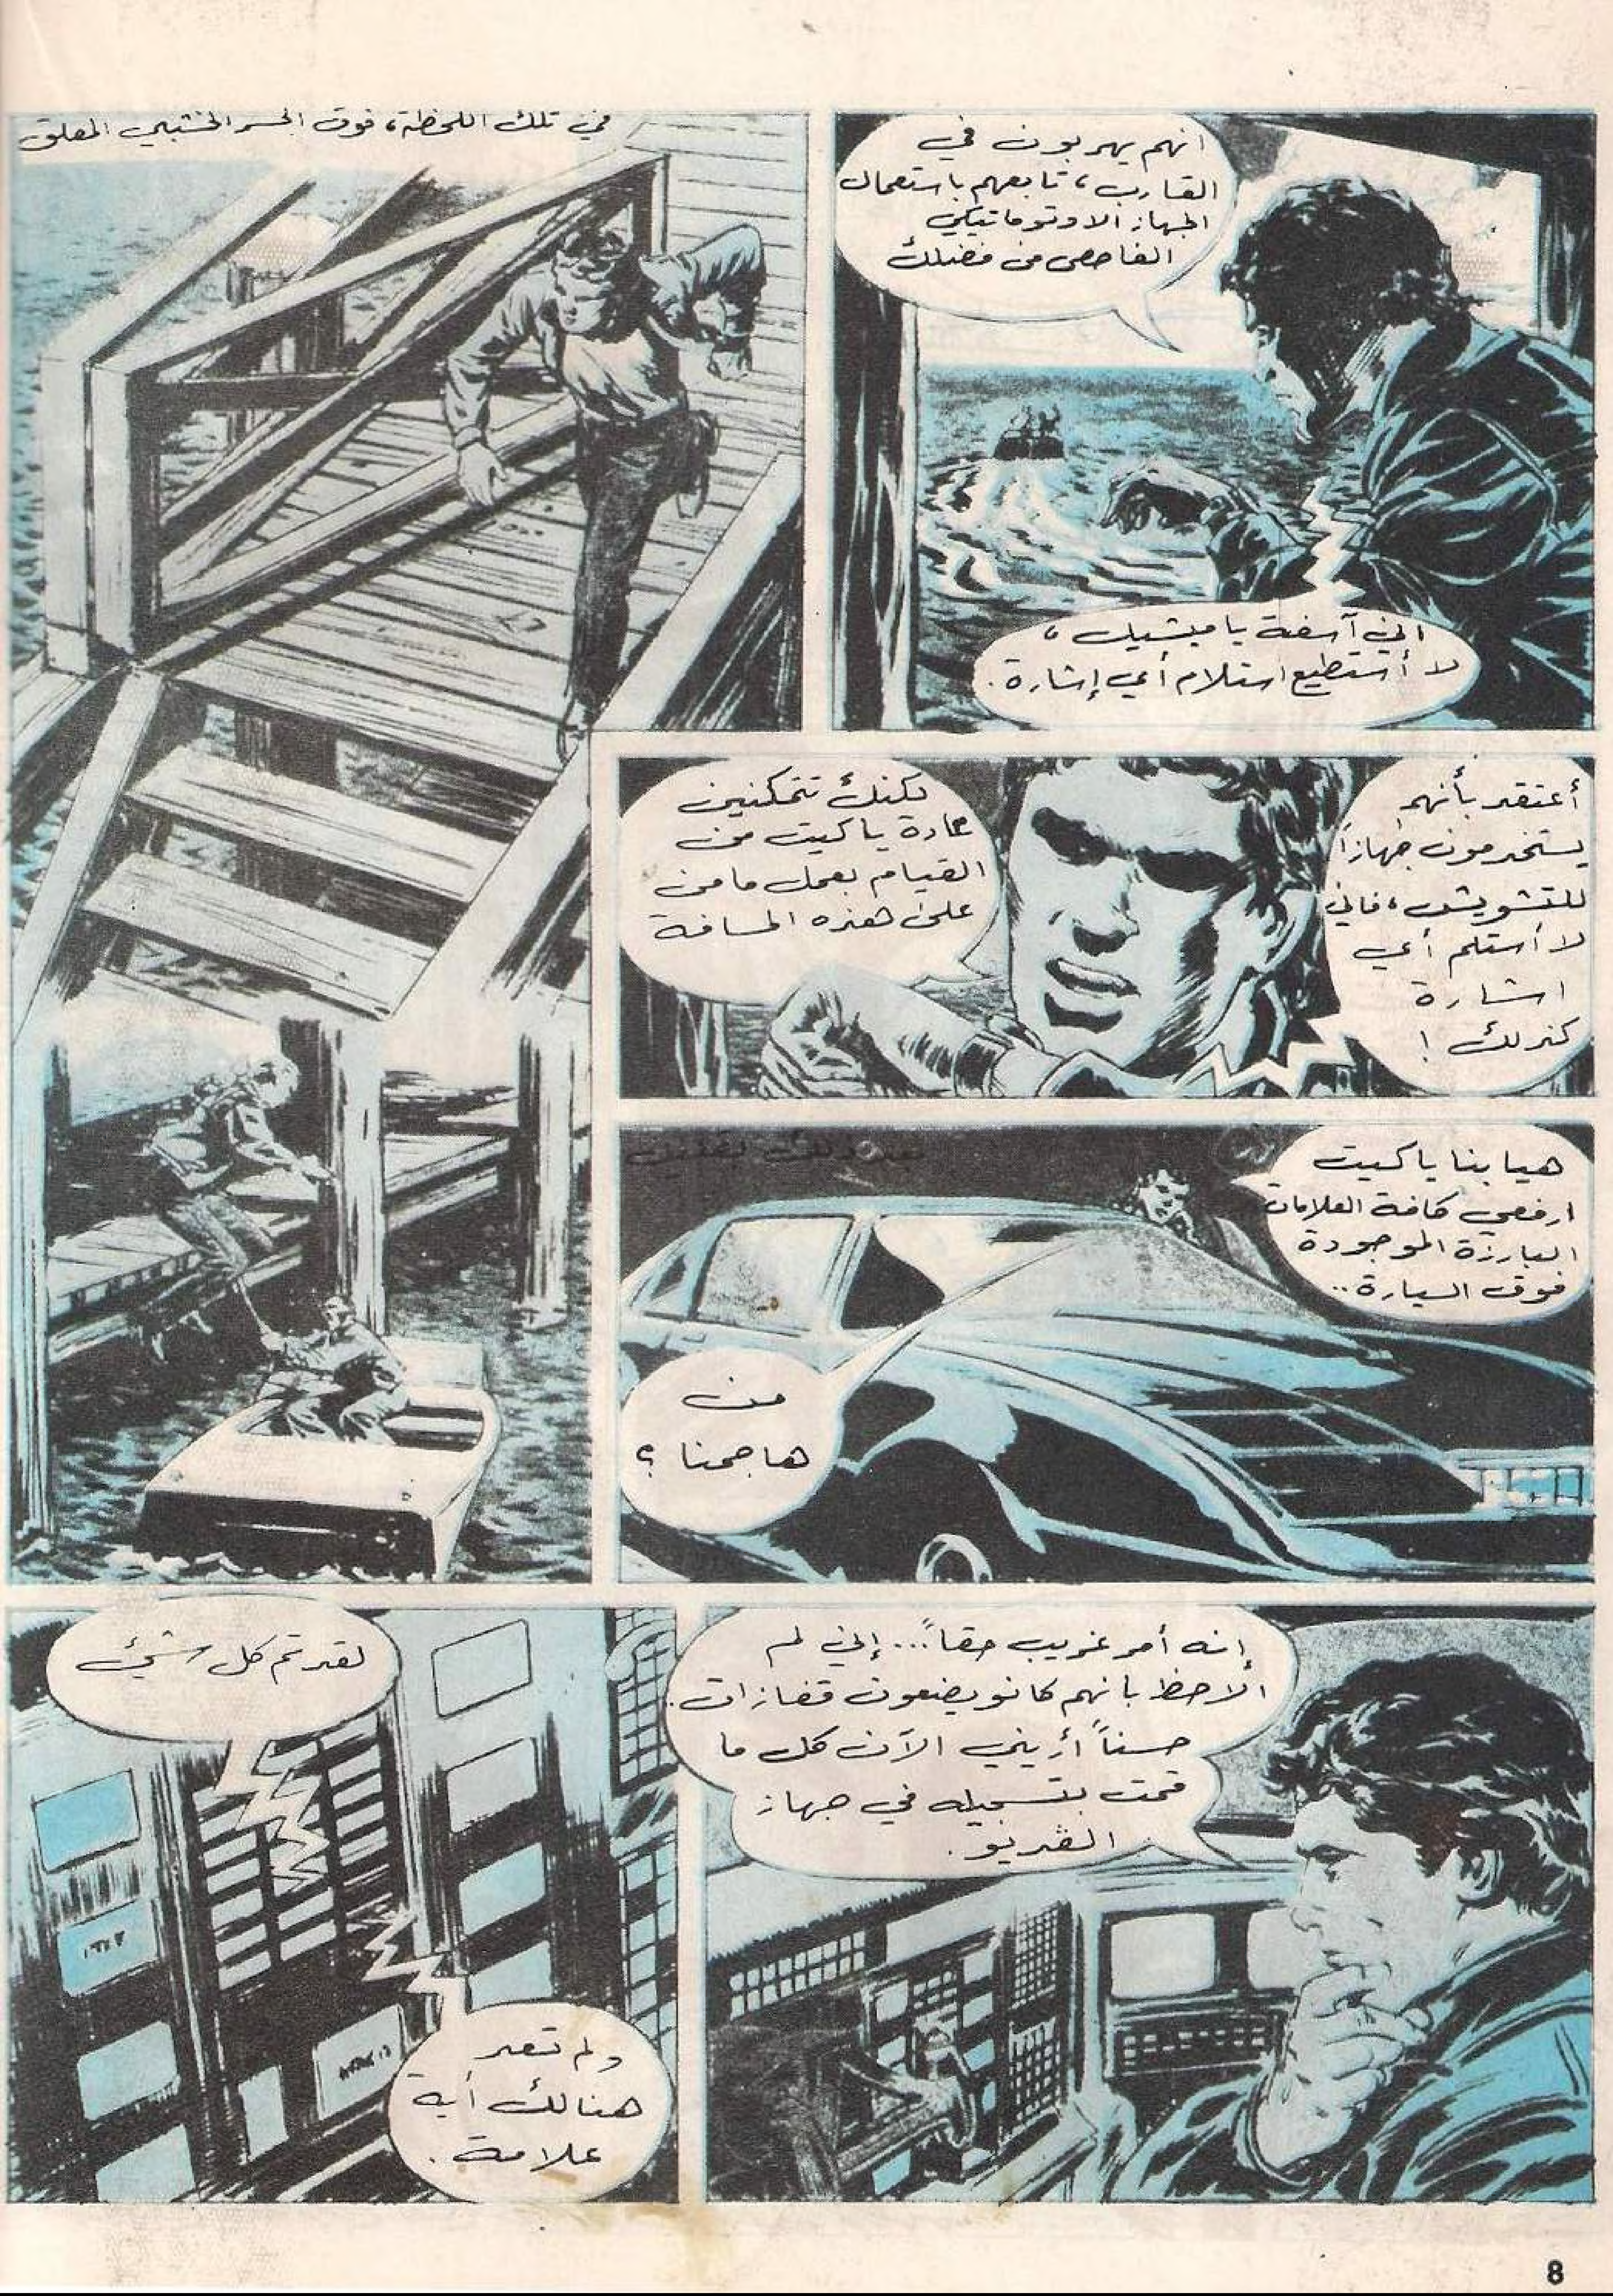 انهم يهربون في
القارب، تابعهم باستعمال
الجهاز الاوتوماتيكي
الفاحص من فضلك
اني آسفة يا ميشيل،
لا أستطيع استلام أي إشارة.
في تلك اللحظة، فوق الجسر الخشبي المعلق
أعتقد بأنهم
يستخدمون جهازاً
للتشويش، فاني
لا أستلم أي
اشارة
كذلك !
لكنك تتمكنين
عادة يا كيت من
القيام بعمل ما من
على هذه المسافة
بعد ذلك بقليل
هيا بنا يا كيت
ارفعي كافة العلامات
البارزة الموجودة
فوق السيارة..
من
هاجمنا ؟
إنه أمر غريب حقاً... إني لم
ألاحظ بانهم كانو يضعون قفازات.
حسناً أريني الآن كل ما
قمت بتسجيله في جهاز
الڤديو.
لقد تم كل شيئ
ولم تعد
هنالك أية
علامة.
8